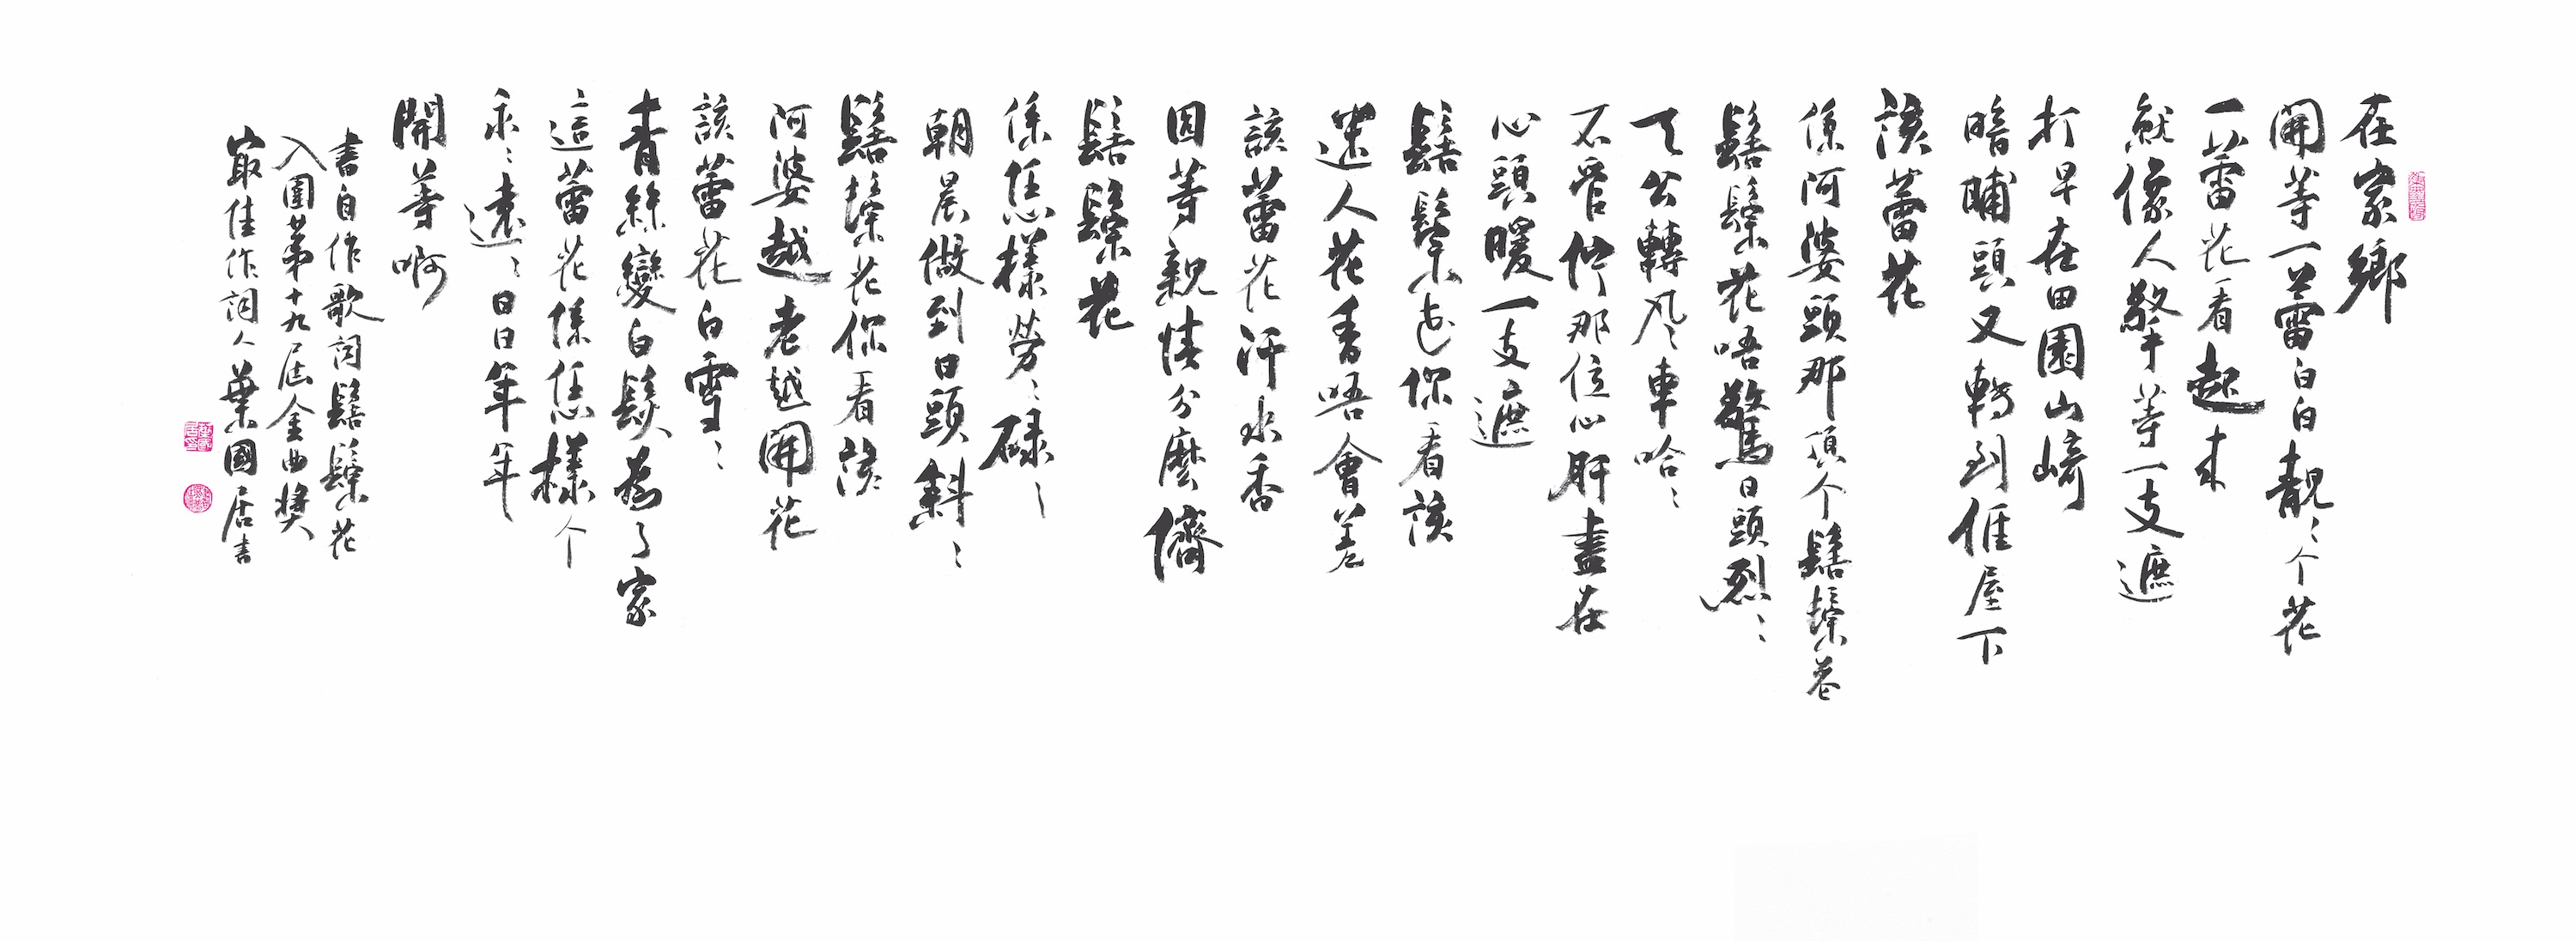 在家鄉
開等一蕾白白靚々个花
一蕾花看起來
就像人擎等一支遮
打早在田園山崎
暗晡頭又轉到𠊎屋下
該蕾花
係阿婆頭那頂个髻鬃花
髻鬃花唔驚日頭烈々
天公轉風々車哈々
不管佇那位心肝盡在
心頭暖一支遮
髻鬃花你看該
迷人花香唔會差
該蕾花汗水香
因等親情分麼儕
髻鬃花
係恁樣勞々碌々
朝晨做到日頭斜々
髻鬃花你看該
阿婆越老越開花
該蕾花白雪々
青絲變白鬃為了家
這蕾花係恁樣个
永々遠々日日年年
開等啊
書自作歌詞髻鬃花
入圍第十九屆金曲獎
最佳作詞人葉國居書